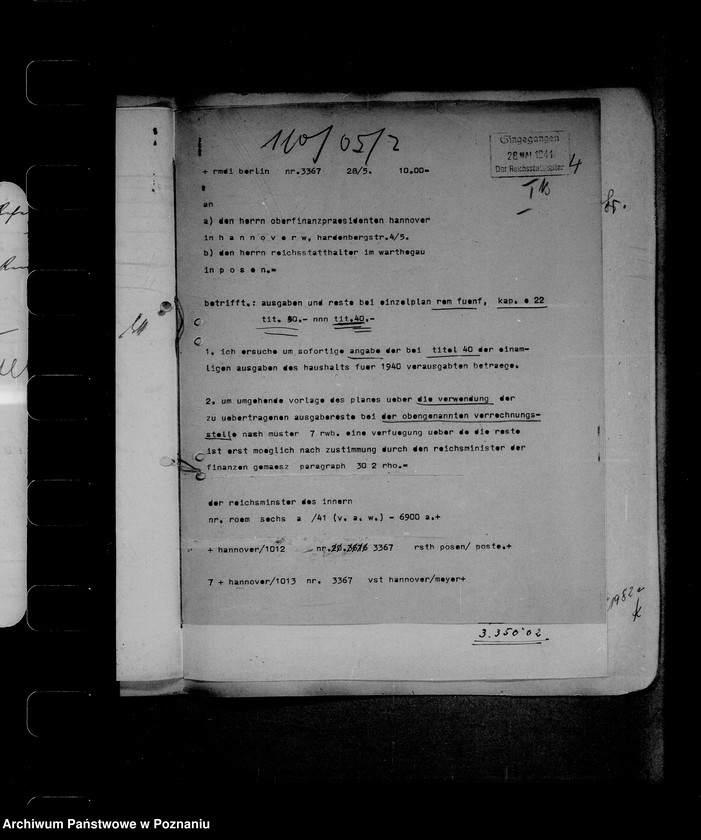 110/05/2
Eingegangen
28 MAI 1941
Der Reichsstatthalter
4
+ rmdi berlin nr.3367 28/5. 10.00=
an
a) den herrn oberfinanzpraesidenten hannover
in h a n n o v e r w, hardenbergstr.4/5.
b) den herrn reichsstatthalter im warthegau
in p o s e n.=
betrifft.: ausgaben und reste bei einzelplan rem fuenf, kap. e 22
tit. 30.- nnn tit.40.-
1. ich ersuche um sofortige angabe der bei titel 40 der einam-
ligen ausgaben des haushalts fuer 1940 verausgabten betraege.
2. um umgehende vorlage des planes ueber die verwendung der
zu uebertragenen ausgabereste bei der obengenannten verrechnungs-
stelle nash muster 7 rwb. eine verfuegung ueber de die reste
ist erst moeglich nach zustimmung durch den reichsminister der
finanzen gemaesz paragraph 30 2 rho.=
der reichsminster des innern
nr. roem sechs a /41 (v. a. w.) - 6900 a.+
+ hannover/1012 nr. 3367 rsth posen/ poste.+
7 + hannover/1013 nr. 3367 vst hannover/meyer+
3.350'02
Archiwum Państwowe w Poznaniu